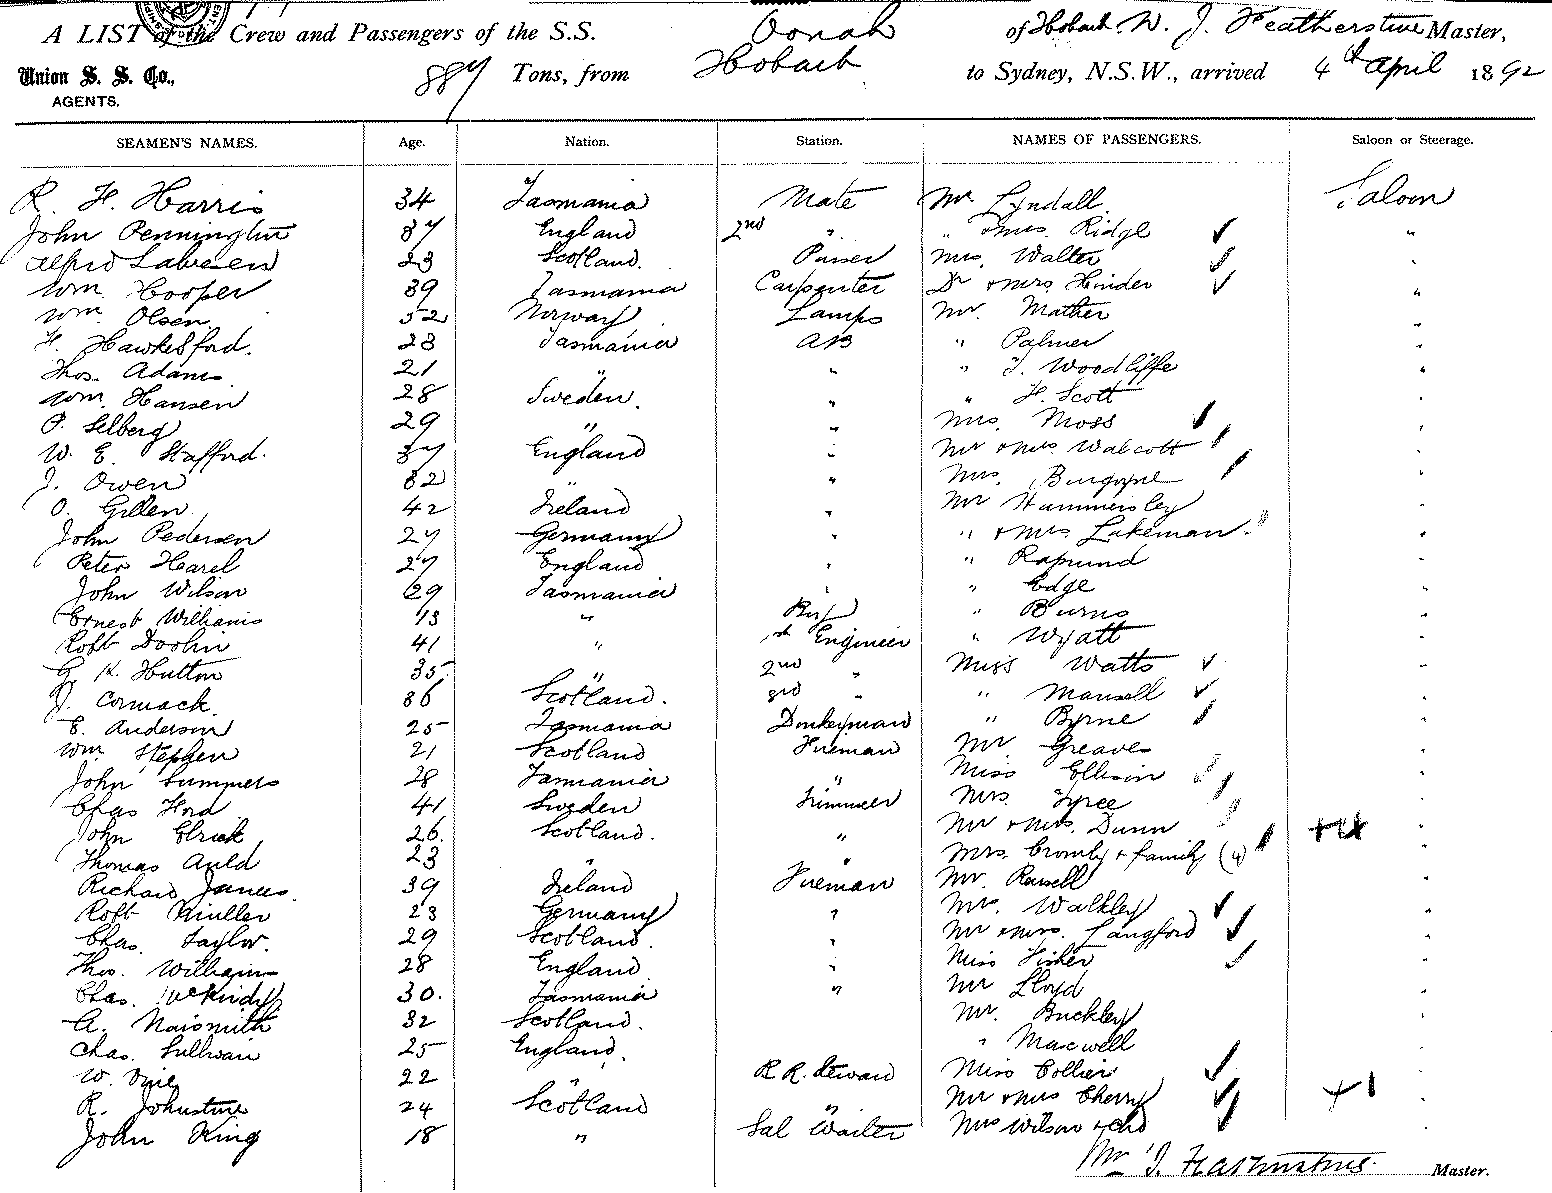 A LIST of the Crew and Passengers of the S.S. Oonah of Hobart W. J. Featherstone Master,
Union S. S. Co., 887 Tons, from Hobart to Sydney, N.S.W., arrived 4th April 1892
AGENTS.
SEAMEN'S NAMES. Age. Nation. Station. NAMES OF PASSENGERS. Saloon or Steerage.
R. H. Harris 34 Tasmania Mate Mr Lyndall Saloon
John Pennington 37 England 2nd " " & Mrs. Ridge "
Alfred 23 Scotland. Purser Mrs. Walter "
Wm. Hooper 39 Tasmania Carpenter Dr & Mrs Hinder "
Wm. Olsen 52 Norway Lamps Mr. Mather "
H. Hawkesford. 23 Tasmania AB " Palmer "
Thos. Adams 21 " " " T. Woodcliffe "
Wm. Hansen 28 Sweden. " " H. Scott "
P. Selberg 29 " " Mrs. Moss "
W. E. Stafford. 37 England " Mr & Mrs Walcott "
J. Owen 32 " " Mrs. Burgoyne "
O. Gillen 42 Ireland " Mr Hammersley "
John Pedersen 27 Germany " " & Mrs Lakeman. "
Peter Harel 27 England " " Rapund "
John Wilson 29 Tasmania " " Edge "
Ernest Williams 13 " Boy " Burns "
Robt Doolin 41 " 1st Engineer " Wyatt "
G. K. Hutton 35 " 2nd " Miss Watts "
J. Cormack 36 Scotland. 3rd " " Mansell "
E. Anderson 25 Tasmania Donkeyman " Byrne "
Wm. Stephen 21 Scotland Fireman Mr Greaves "
John Summers 28 Tasmania " Miss Ellison "
Chas Hord 41 Sweden Trimmer Mrs. Tyree "
John Elrick 26. Scotland. " Mr & Mrs. Dunn "
Thomas Auld 23 " " Mrs. Cromby & family (4) "
Richard James 39 Ireland Fireman Mr. Russell "
Robt Muller 23 Germany " Mrs. Walkley "
Chas. Taylor. 29 Scotland. " Mr & Mrs. Langford "
Thos. Williams 28 England " Miss Fisher "
Chas. McKindly 30. Tasmania " Mr Lloyd "
A. Naismith 32 Scotland. Mr. Buckley "
Chas. Sullivan 25 England. " Maxwell "
W. 22 " R R. Steward Miss Collier "
R. Johnstone 24 Scotland " Mr & Mrs Cherry "
John King 18 " Sal Waiter Mrs Wilson & chd "
Wm. J. Featherstone. Master.